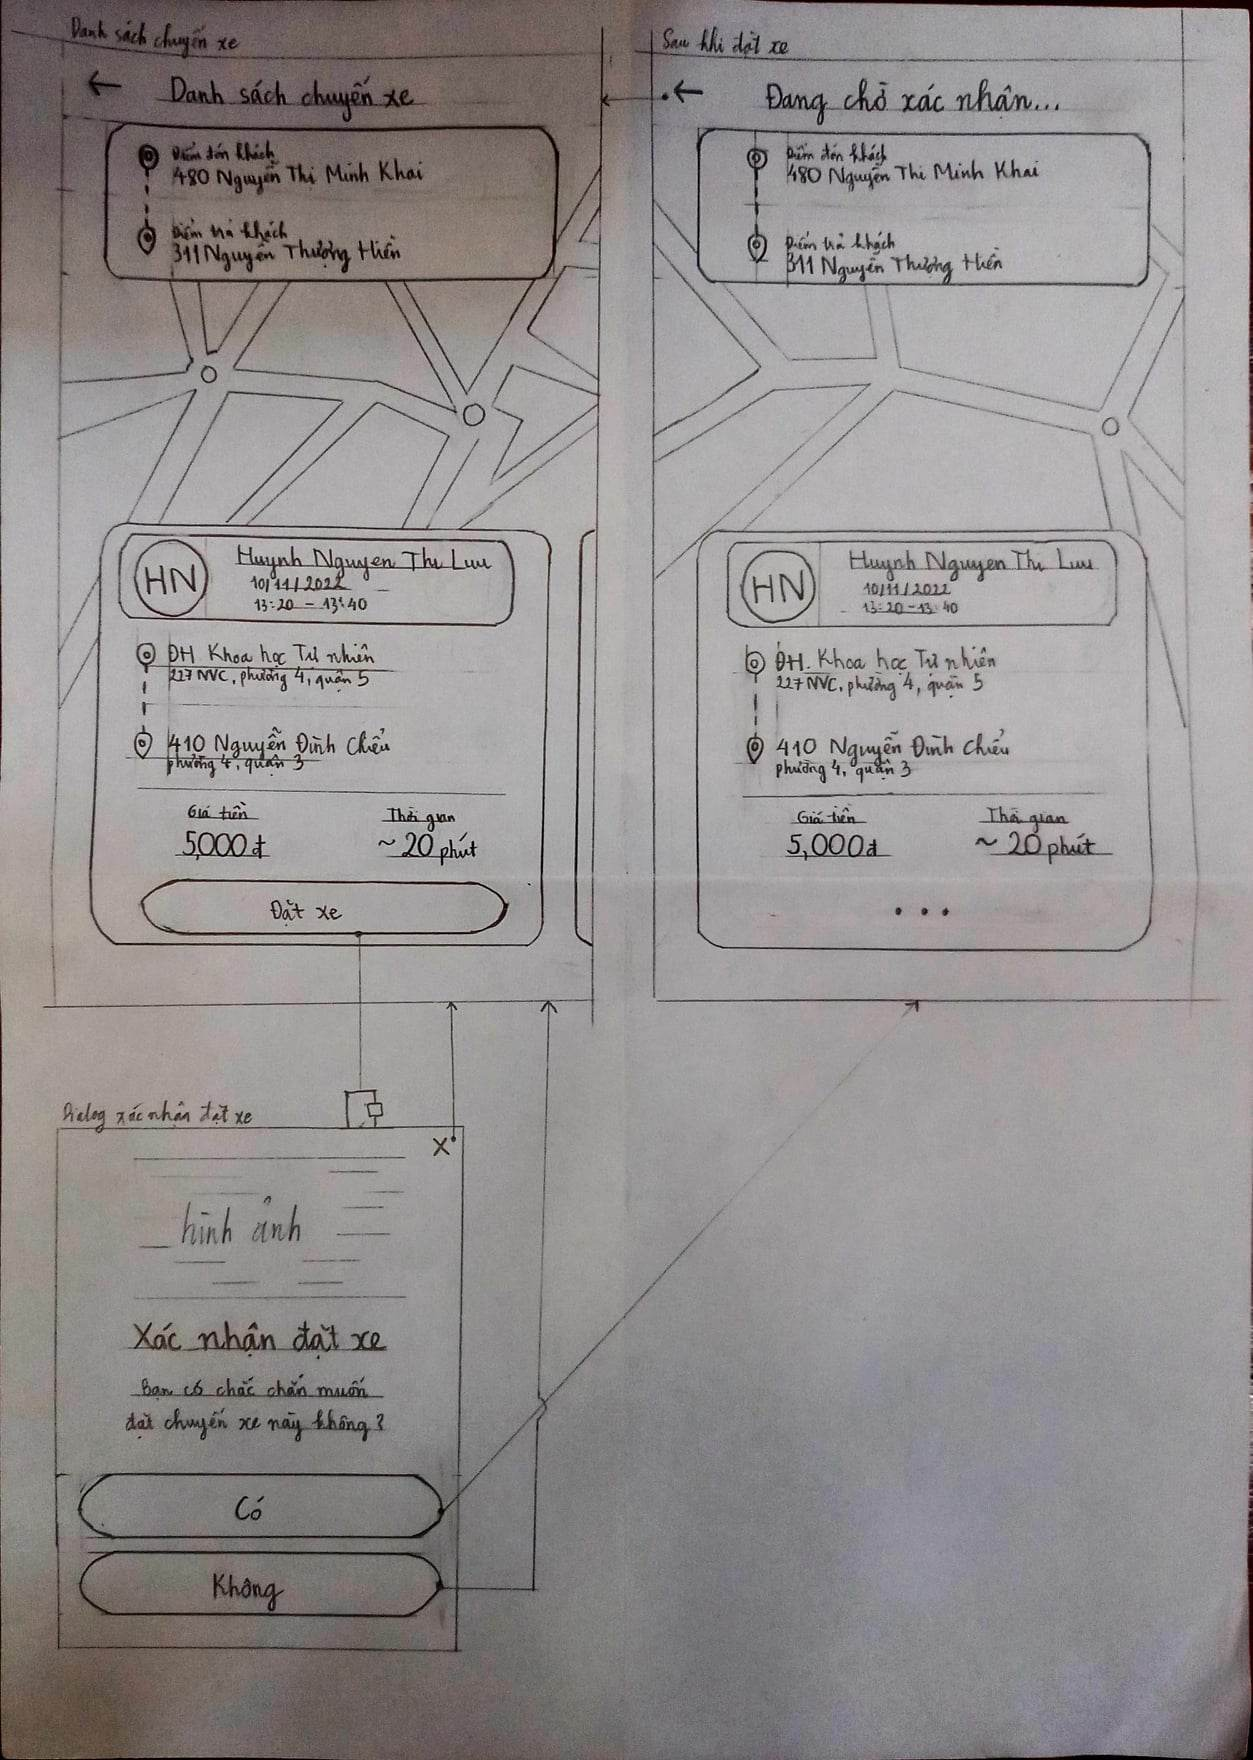 Danh sách chuyến xe
← Danh sách chuyến xe
Điểm đón khách
480 Nguyễn Thị Minh Khai
Điểm trả khách
311 Nguyễn Thượng Hiền
HN
Huynh Nguyen Thi Luu
10/11/2022
13:20 - 13:40
ĐH Khoa học Tự nhiên
227 NVC, phường 4, quận 5
410 Nguyễn Đình Chiểu
phường 4, quận 3
Giá tiền
Thời gian
5,000đ
~ 20 phút
Đặt xe
Sau khi đặt xe
← Đang chờ xác nhận...
Điểm đón khách
480 Nguyễn Thị Minh Khai
Điểm trả khách
311 Nguyễn Thượng Hiền
HN
Huynh Nguyen Thi Luu
10/11/2022
13:20 - 13:40
ĐH. Khoa học Tự nhiên
227 NVC, phường 4, quận 5
410 Nguyễn Đình Chiểu
phường 4, quận 3
Giá tiền
Thời gian
5,000đ
~ 20 phút
...
Dialog xác nhận đặt xe
X
hình ảnh
Xác nhận đặt xe
Bạn có chắc chắn muốn
đặt chuyến xe này không?
Có
Không